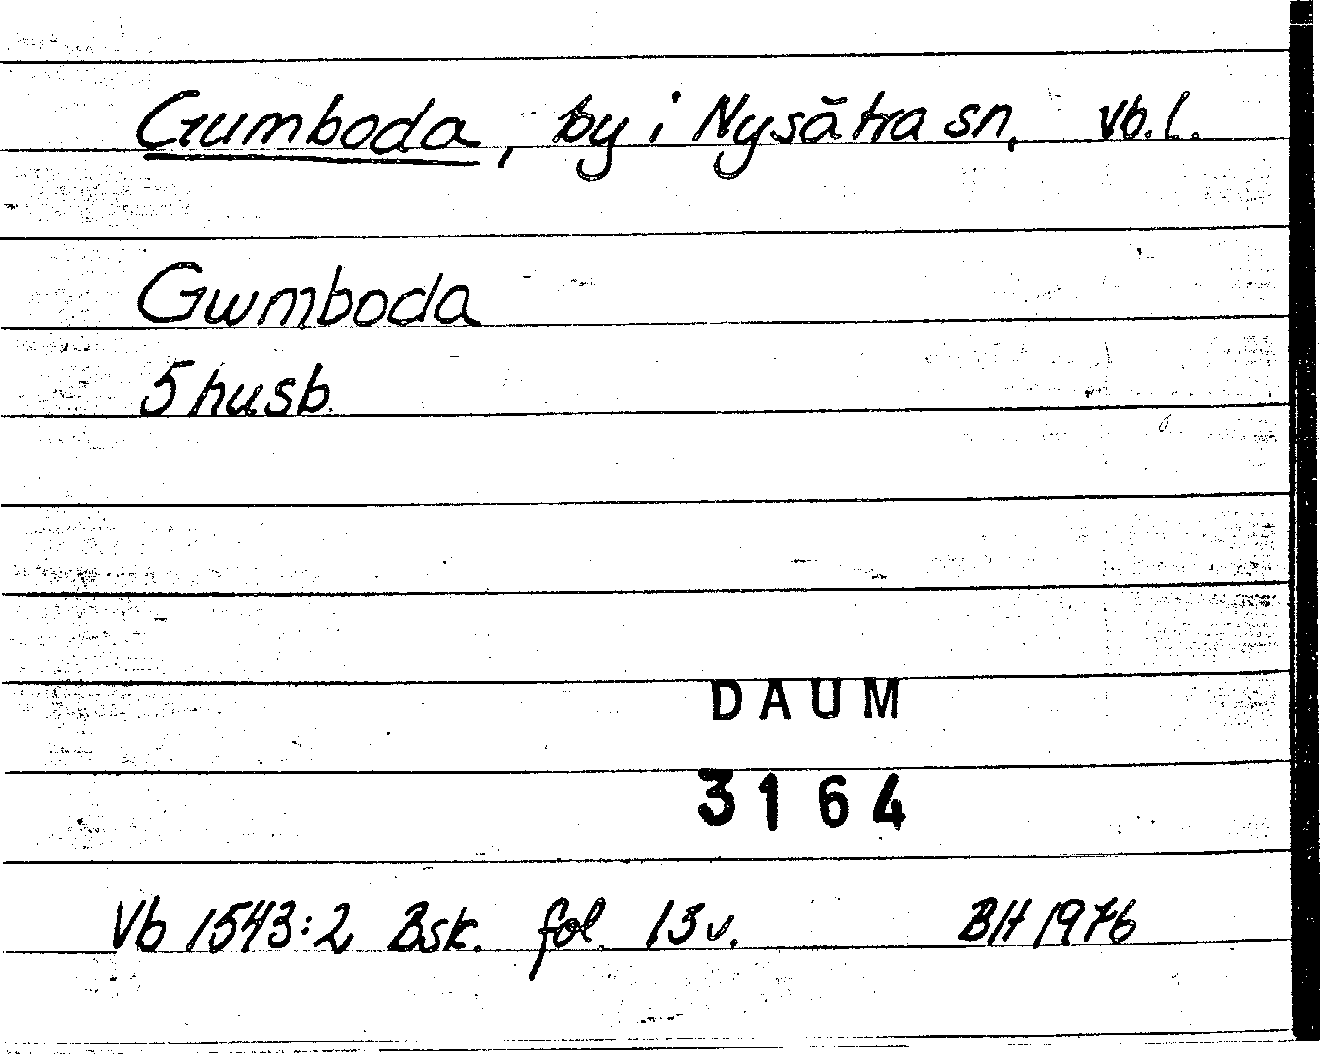 Gumboda, by i Nysätra sn, Vb. l.
Gwmboda
5 husb.
DAUM
3164
Vb 1543:2 Bsk. fol. 13 v. BH 1976